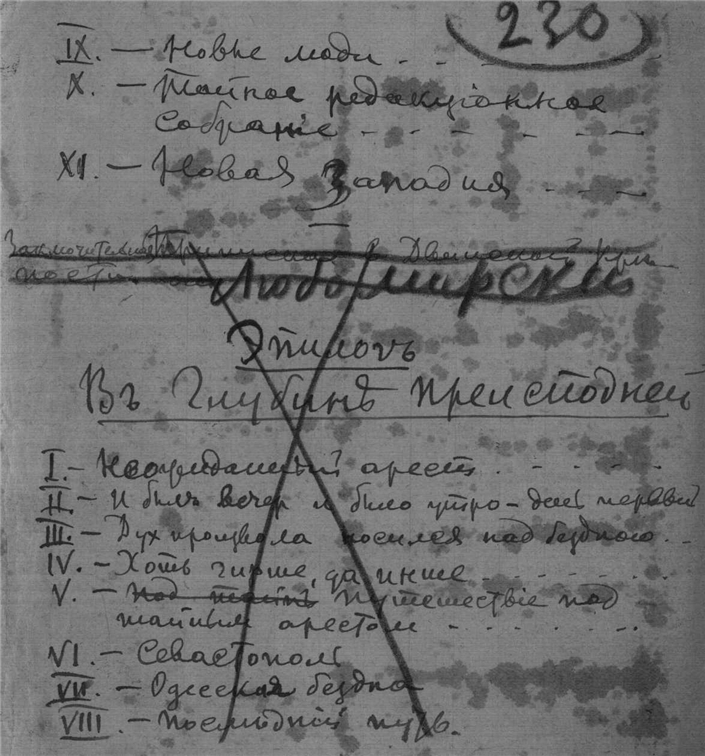 230
IX. — Новые люди . .
X. — Тайное редакціонное
Собраніе - - - - - -
XI. — Новая Западия - - -
Заключительная в Двинской
Любомирски
Эпилогъ
Въ Глубинѣ преисподней
I. — Неожиданный арест . - - - -
II. — И былъ вечер и было утро - день первый
III. — Дух произвола носился над бездною . -
IV. — Хоть гирше, да инше - - - - -
V. — Под тайнымъ путешествіе под
тайным арестом - - - - . .
VI. — Севастополь
VII. — Одесская бездна
VIII. — Последній путь.